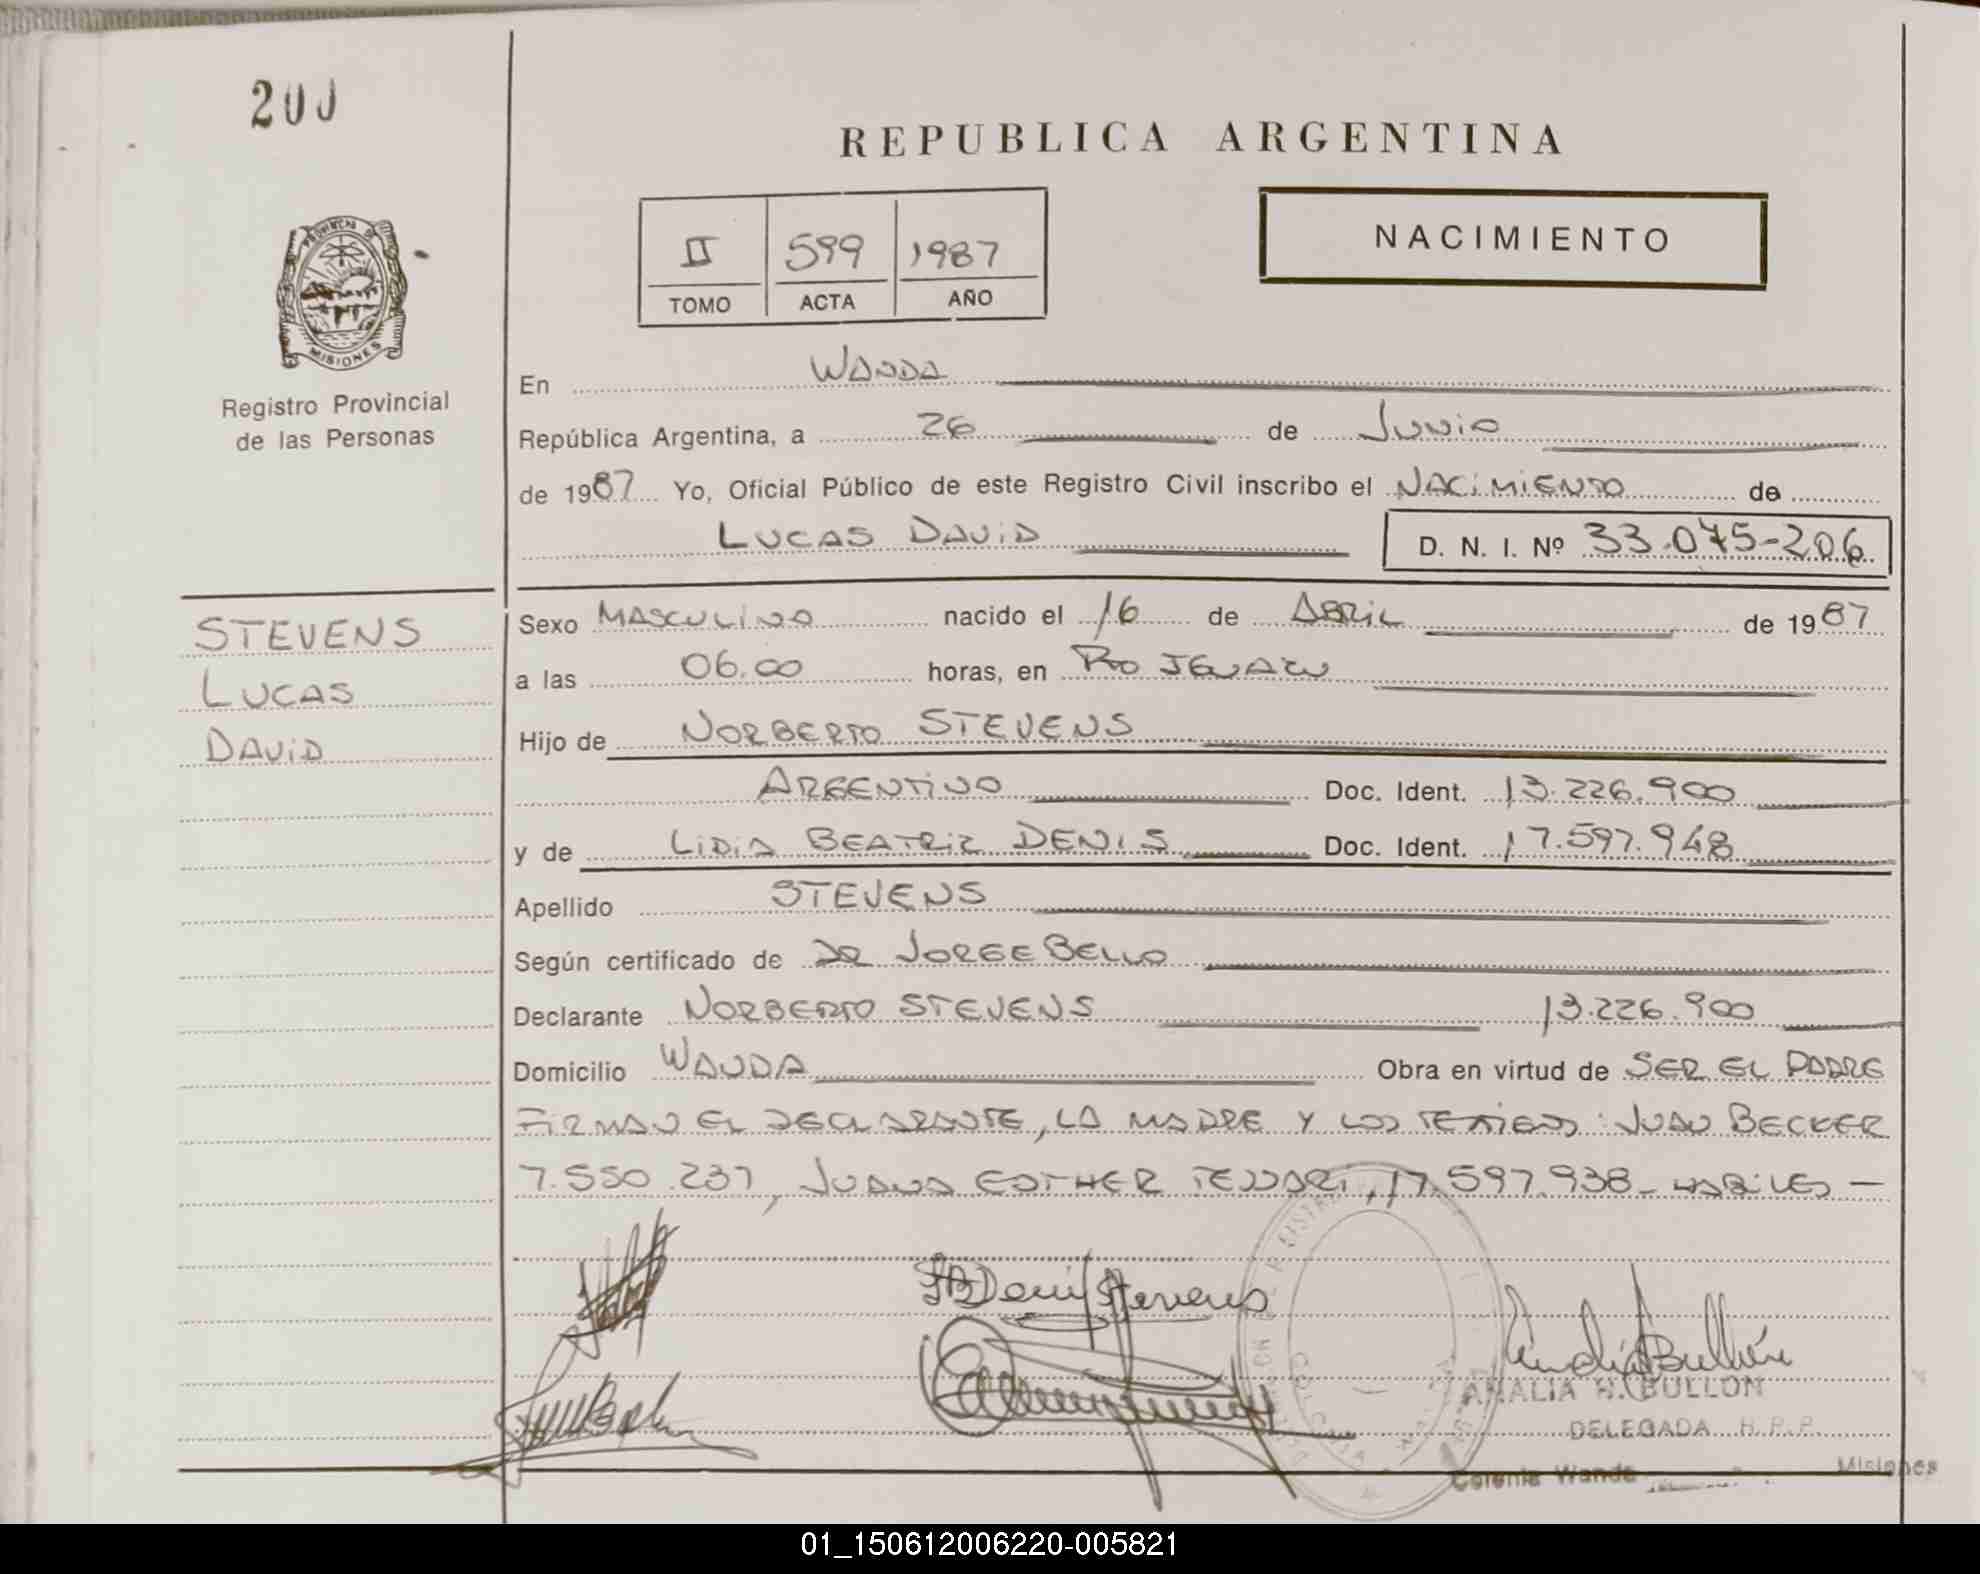 200
REPUBLICA ARGENTINA
II 599 1987
TOMO ACTA AÑO
NACIMIENTO
PROVINCIA DE
MISIONES
Registro Provincial
de las Personas
En WANDA
República Argentina, a 26 de JUNIO
de 1987 Yo, Oficial Público de este Registro Civil inscribo el NACIMIENTO de
LUCAS DAVID D. N. I. Nº 33.075-206
STEVENS
LUCAS
DAVID
Sexo MASCULINO nacido el 16 de ABRIL de 1987
a las 06.00 horas, en PTO IGUAZU
Hijo de NORBERTO STEVENS
ARGENTINO Doc. Ident. 13.226.900
y de LIDIA BEATRIZ DENIS Doc. Ident. 17.597.948
Apellido STEVENS
Según certificado de DR JORGE BELLO
Declarante NORBERTO STEVENS 13.226.900
Domicilio WANDA Obra en virtud de SER EL PADRE
FIRMAN EL DECLARANTE, LA MADRE Y LOS TESTIGOS: JUAN BECKER
7.550.237, JUANA ESTHER TESSARI, 17.597.938 - HABILES -
AMALIA H. BULLON
DELEGADA R.P.P.
Colonia Wanda Misiones
01_150612006220-005821